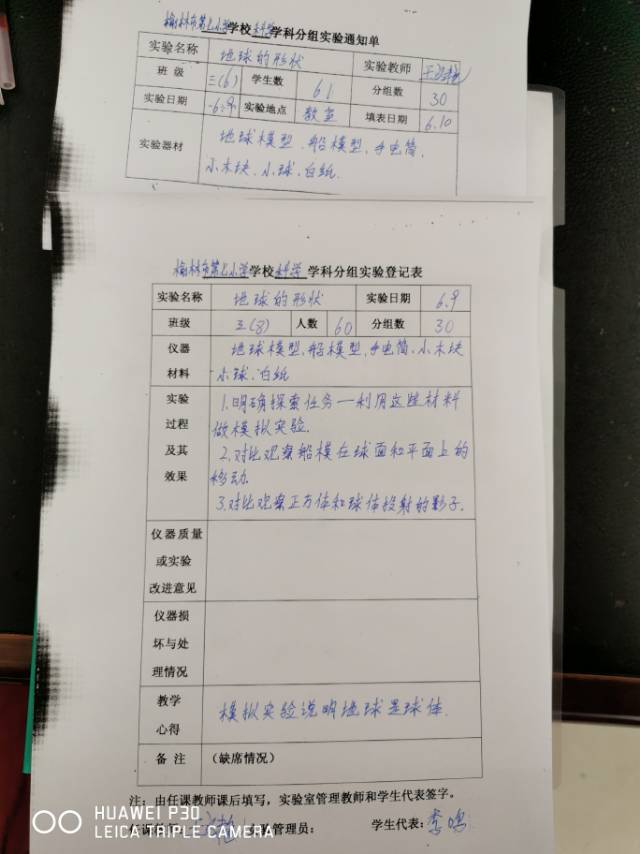 榆林市第七小学学校科学学科分组实验通知单
实验名称 地球的形状 实验教师
班级 三(6) 学生数 61 分组数 30
实验日期 6.9 实验地点 教室 填表日期 6.10
实验器材 地球模型、船模型、手电筒、
小木块、小球、白纸.
榆林市第七小学学校科学学科分组实验登记表
实验名称 地球的形状 实验日期 6.9
班级 三(8) 人数 60 分组数 30
仪器 地球模型、船模型、手电筒、小木块
材料 小球、白纸
实验 1.明确探索任务—利用这些材料
过程 做模拟实验.
及其 2.对比观察船模在球面和平面上的
效果 移动.
3.对比观察正方体和球体投射的影子.
仪器质量
或实验
改进意见
仪器损
坏与处
理情况
教学 模拟实验说明地球是球体.
心得
备注 (缺席情况)
注:由任课教师课后填写,实验室管理教师和学生代表签字。
管理员: 学生代表:李
HUAWEI P30
LEICA TRIPLE CAMERA